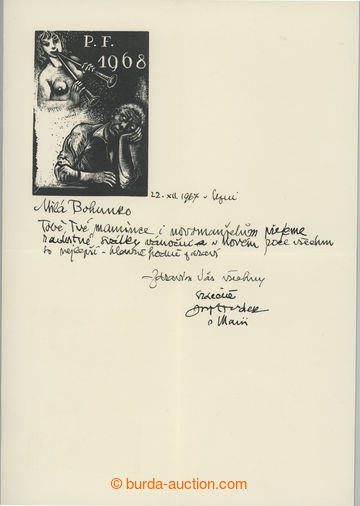 P. F.
1968
22. XII. 1967
Milá Bohunko
Tobě, Tvé mamince i novomanželům přejeme
radostné svátky vánoční a v Novém roce všechno
to nejlepší - hlavně hodně zdraví
Zdravím Vás všechny
srdečně
© burda-auction.com